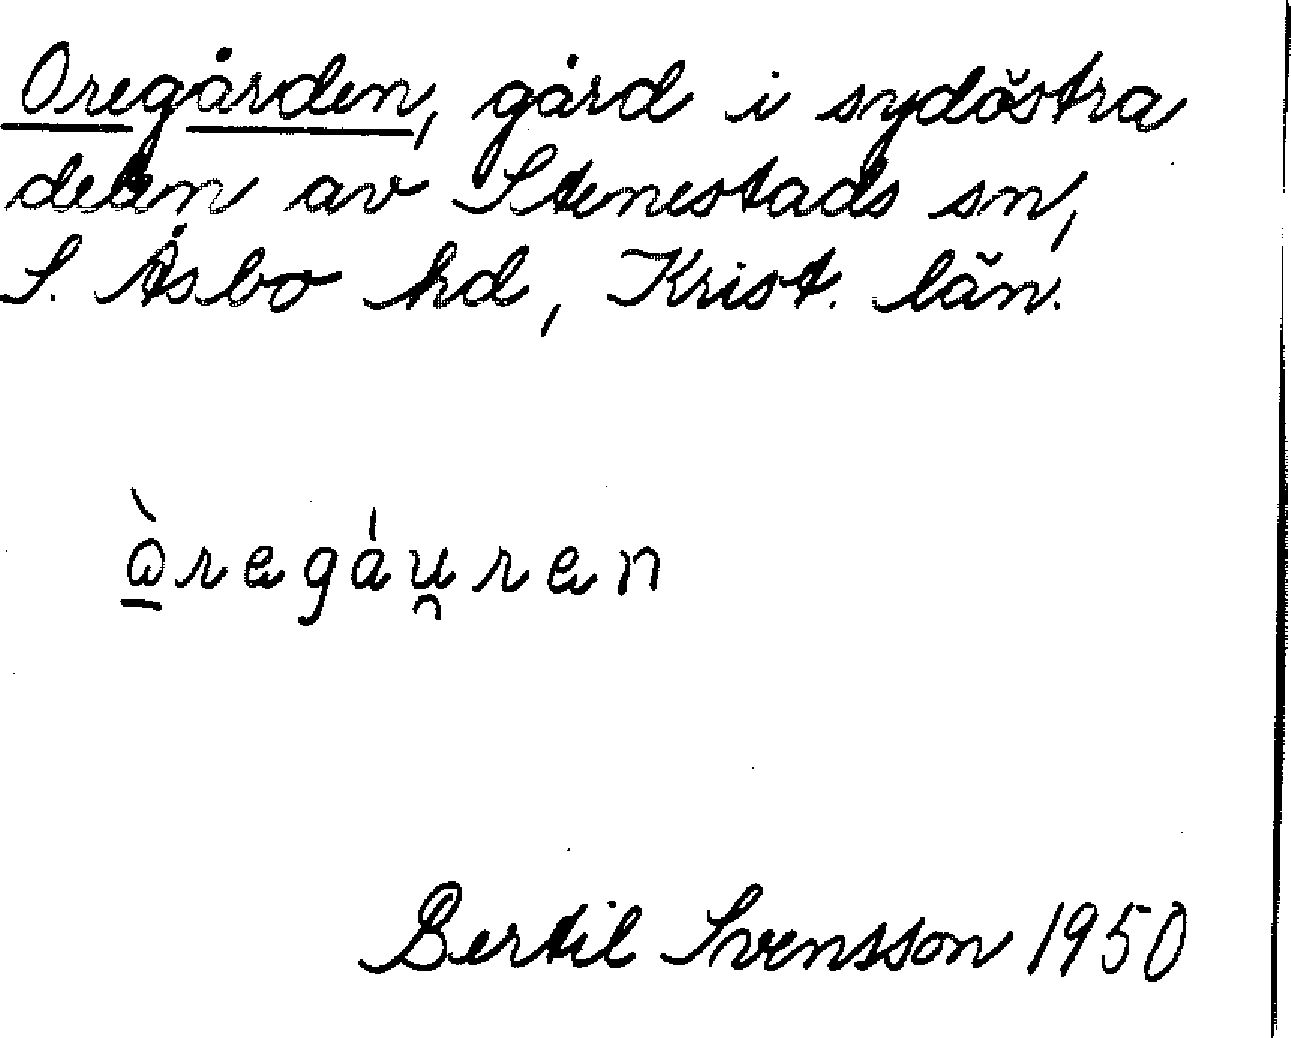 Oregården, gård i sydöstra
delen av Stenestads sn,
S. Åsbo hd, Krist. län.
å̱̀regáu̯ren
Bertil Svensson 1950